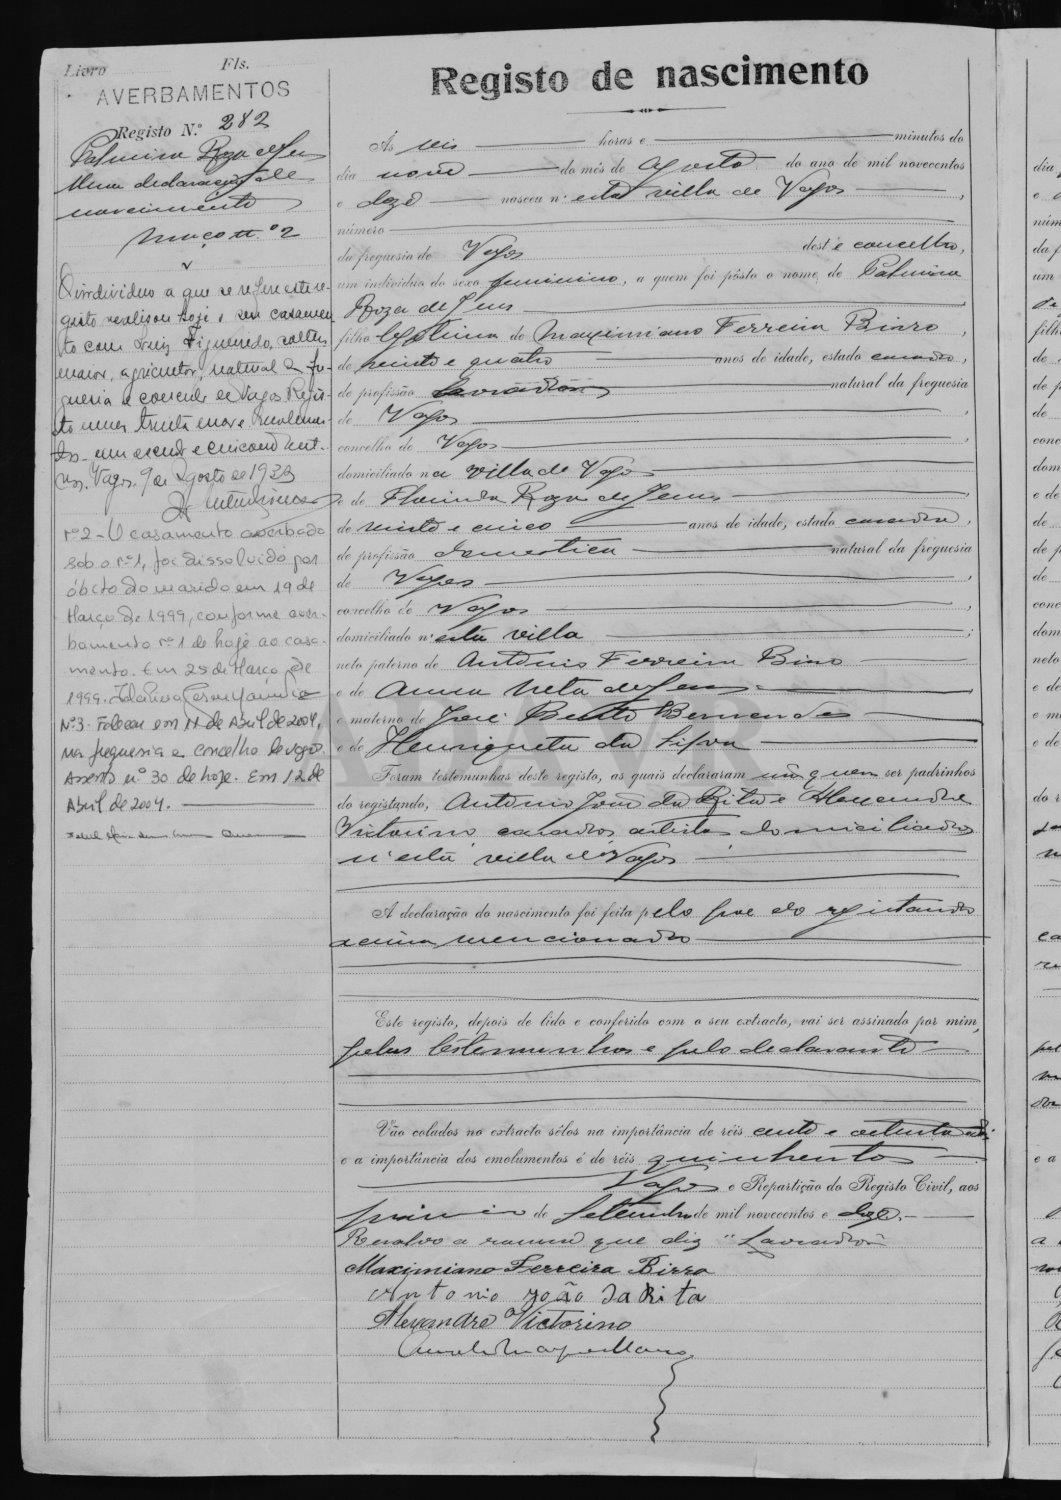 Livro Fls.
AVERBAMENTOS
Registo N.º 282
Palmira Roza de Jesus
Uma declaração de
nascimento
Maço n.º 2
O individuo a que se refere este re-
gisto realisou hoje o seu casamen-
to com Luiz Figueiredo, solteiro,
maior, agricultor, natural da fre-
guesia e concelho de Vagos. Regis-
to numero trinta e nove.
Vagos, 9 de Agosto de 1933
nº 2 - O casamento averbado
sob o nº 1, foi dissolvido por
óbito do marido em 19 de
Março de 1999, conforme aver-
bamento nº 1 de hoje ao casa-
mento. Em 25 de Março de
1999.
Nº 3 - Faleceu em 11 de Abril de 2004,
na freguesia e concelho de Vagos.
Assento nº 30 de hoje. Em 12 de
Abril de 2004.
Registo de nascimento
Ás seis horas e minutos do
dia nove do mês de Agosto do ano de mil novecentos
e doze nasceu n'esta villa de Vagos,
número
da freguesia de Vagos dest'e concelho,
um indivíduo do sexo feminino, a quem foi pôsto o nome de Palmira
Roza de Jesus
filha legitima de Maximiano Ferreira Birro,
de vinte e quatro anos de idade, estado casado,
de profissão lavrador natural da freguesia
de Vagos,
concelho de Vagos,
domiciliado na villa de Vagos
e de Florinda Roza de Jesus,
de vinte e cinco anos de idade, estado casada,
de profissão domestica natural da freguesia
de Vagos,
concelho de Vagos,
domiciliado n'esta villa;
neto paterno de Antonio Ferreira Birro
e de Anna Neta de Jesus
e materno de José Bento Bernardes
e de Henriqueta da Silva
Foram testemunhas deste registo, as quais declararam ser padrinhos
do registando, Antonio João da Rita e Alexandre
Victorino casados artistas domiciliados
n'esta villa de Vagos
A declaração do nascimento foi feita pelo pae do registando
acima mencionado
Este registo, depois de lido e conferido com o seu extracto, vai ser assinado por mim,
pelas testemunhas e pelo declarante
Vão colados no extracto sêlos na importância de réis cento e oitenta réis
e a importância dos emolumentos é de réis quinhentos
Vagos e Repartição do Registo Civil, aos
primeiro de Setembro de mil novecentos e doze.
Resalvo a rasura que diz "Lavrador"
Maximiano Ferreira Birro
Antonio João da Rita
Alexandre Victorino
ADAVR